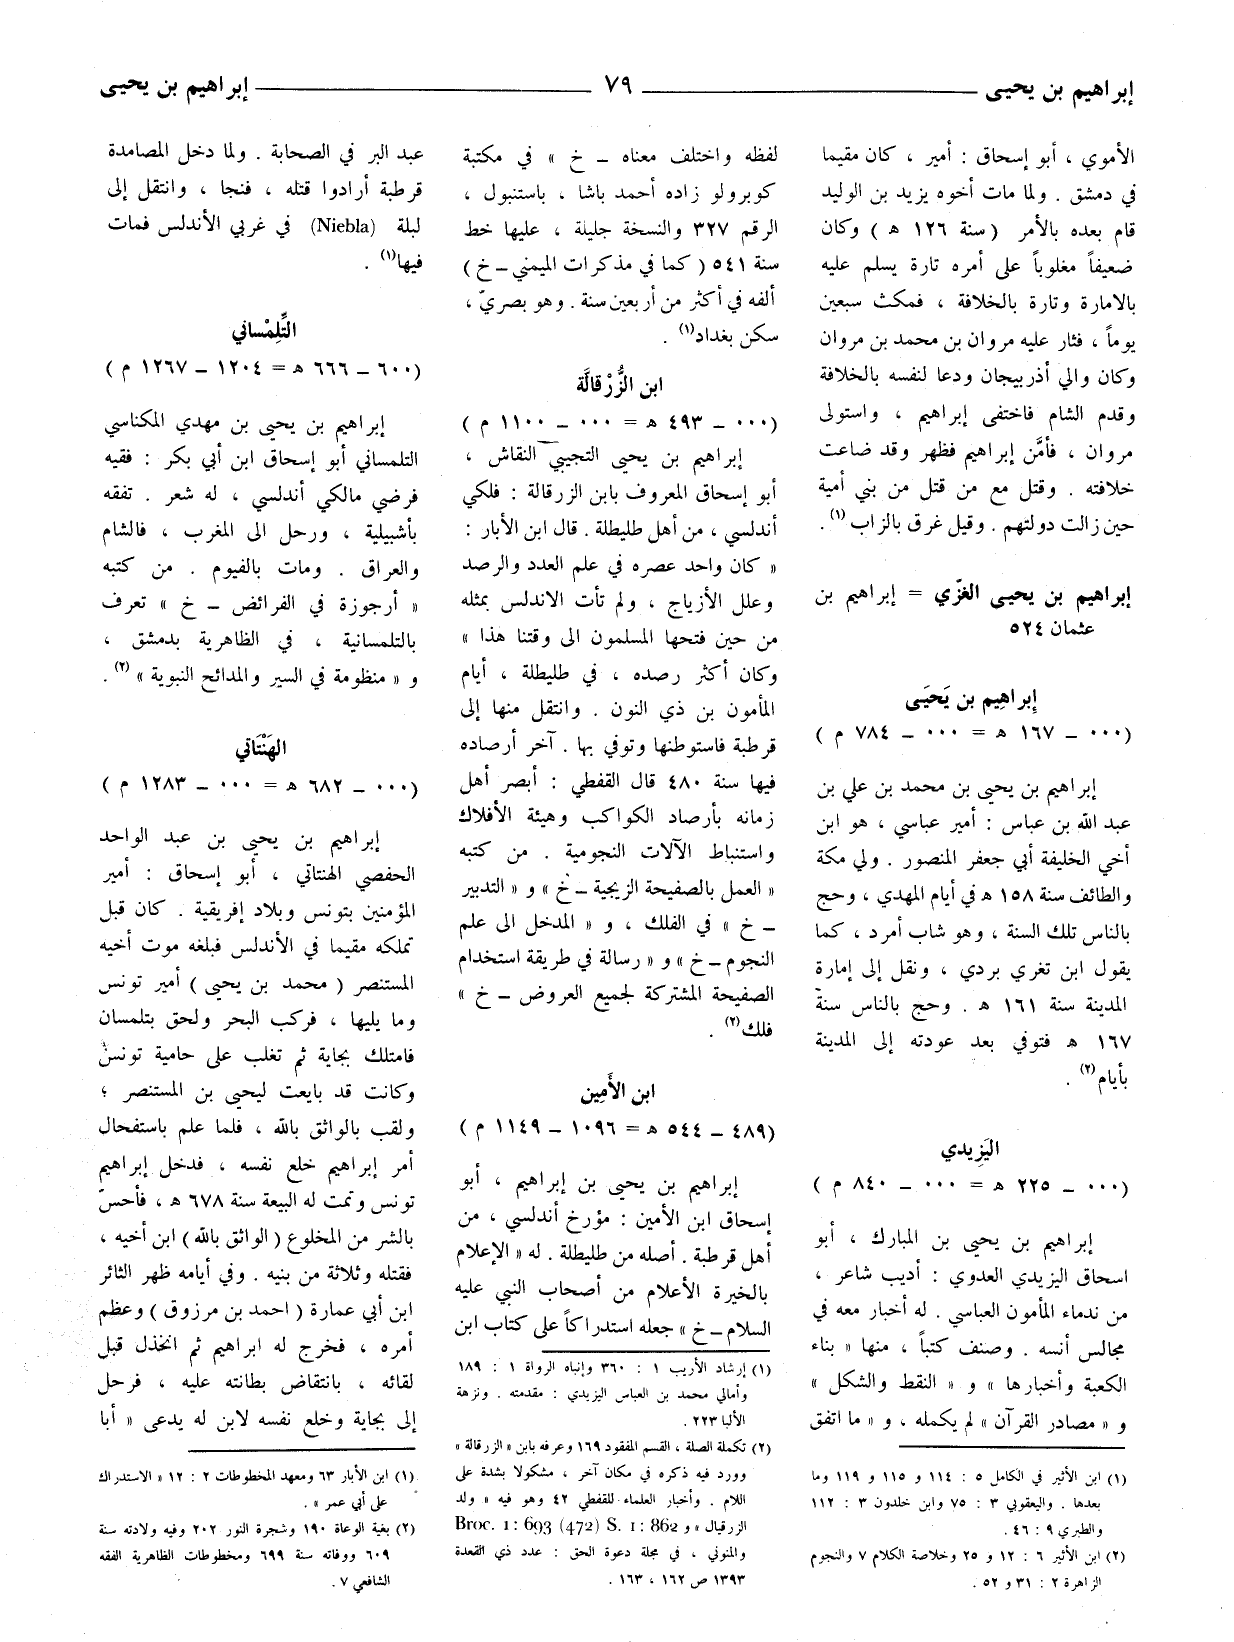 إبراهيم بن يحيى ٧٩ إبراهيم بن يحيى
الأموي ، أبو إسحاق : أمير ، كان مقيما
في دمشق . ولما مات أخوه يزيد بن الوليد
قام بعده بالأمر ( سنة ١٢٦ ه ) وكان
ضعيفاً مغلوباً على أمره تارة يسلم عليه
بالامارة وتارة بالخلافة ، فمكث سبعين
يوماً ، فثار عليه مروان بن محمد بن مروان
وكان والي أذربيجان ودعا لنفسه بالخلافة
وقدم الشام فاختفى إبراهيم ، واستولى
مروان ، فأمَّن إبراهيم فظهر وقد ضاعت
خلافته . وقتل مع من قتل من بني أمية
حين زالت دولتهم . وقيل غرق بالزاب (١) .
إبراهيم بن يحيى الغزّي = إبراهيم بن
عثمان ٥٢٤
إبراهيم بن يَحيَى
( ٠٠٠ ـ ١٦٧ ه = ٠٠٠ ـ ٧٨٤ م )
إبراهيم بن يحيى بن محمد بن علي بن
عبد الله بن عباس : أمير عباسي ، هو ابن
أخي الخليفة أبي جعفر المنصور . ولي مكة
والطائف سنة ١٥٨ ه في أيام المهدي ، وحج
بالناس تلك السنة ، وهو شاب أمرد ، كما
يقول ابن تغري بردي ، ونقل إلى إمارة
المدينة سنة ١٦١ ه . وحج بالناس سنة
١٦٧ ه فتوفي بعد عودته إلى المدينة
بأيام (٢) .
اليَزِيدي
( ٠٠٠ ـ ٢٢٥ ه = ٠٠٠ ـ ٨٤٠ م )
إبراهيم بن يحيى بن المبارك ، أبو
اسحاق اليزيدي العدوي : أديب شاعر ،
من ندماء المأمون العباسي . له أخبار معه في
مجالس أنسه . وصنف كتباً ، منها « بناء
الكعبة وأخبارها » و « النقط والشكل »
و « مصادر القرآن » لم يكمله ، و « ما اتفق
(١) ابن الأثير في الكامل ٥ : ١١٤ و ١١٥ و ١١٩ وما
بعدها . واليعقوبي ٣ : ٧٥ وابن خلدون ٣ : ١١٢
والطبري ٩ : ٤٦ .
(٢) ابن الأثير ٦ : ١٢ و ٢٥ وخلاصة الكلام ٧ والنجوم
الزاهرة ٢ : ٣١ و ٥٢ .
لفظه واختلف معناه ـ خ » في مكتبة
كوبرولو زاده أحمد باشا ، باستنبول ،
الرقم ٣٢٧ والنسخة جليلة ، عليها خط
سنة ٥٤١ ( كما في مذكرات الميمني ـ خ )
ألفه في أكثر من أربعين سنة . وهو بصريّ ،
سكن بغداد (١) .
ابن الزُّرْقالَّة
( ٠٠٠ ـ ٤٩٣ ه = ٠٠٠ ـ ١١٠٠ م )
إبراهيم بن يحيى التجيبي النقاش ،
أبو إسحاق المعروف بابن الزرقالة : فلكي
أندلسي ، من أهل طليطلة . قال ابن الأبار :
« كان واحد عصره في علم العدد والرصد
وعلل الأزياج ، ولم تأت الاندلس بمثله
من حين فتحها المسلمون الى وقتنا هذا »
وكان أكثر رصده ، في طليطلة ، أيام
المأمون بن ذي النون . وانتقل منها إلى
قرطبة فاستوطنها وتوفي بها . آخر أرصاده
فيها سنة ٤٨٠ قال القفطي : أبصر أهل
زمانه بأرصاد الكواكب وهيئة الأفلاك
واستنباط الآلات النجومية . من كتبه
« العمل بالصفيحة الزيجية ـ خ » و « التدبير
ـ خ » في الفلك ، و « المدخل الى علم
النجوم ـ خ » و « رسالة في طريقة استخدام
الصفيحة المشتركة لجميع العروض ـ خ »
فلك (٢) .
ابن الأَمِين
( ٤٨٩ ـ ٥٤٤ ه = ١٠٩٦ ـ ١١٤٩ م )
إبراهيم بن يحيى بن إبراهيم ، أبو
إسحاق ابن الأمين : مؤرخ أندلسي ، من
أهل قرطبة . أصله من طليطلة . له « الإعلام
بالخيرة الأعلام من أصحاب النبي عليه
السلام ـ خ » جعله استدراكاً على كتاب ابن
(١) إرشاد الأريب ١ : ٣٦٠ وإنباه الرواة ١ : ١٨٩
وأمالي محمد بن العباس اليزيدي : مقدمته . ونزهة
الألبا ٢٢٣ .
(٢) تكملة الصلة ، القسم المفقود ١٦٩ وعرفه بابن « الزرقالة »
وورد فيه ذكره في مكان آخر ، مشكولا بشدة على
اللام . وأخبار العلماء للقفطي ٤٢ وهو فيه « ولد
الزرقيال » و Broc. 1 : 693 (472) S. 1 : 862
والمنوني ، في مجلة دعوة الحق : عدد ذي القعدة
١٣٩٣ ص ١٦٢ ، ١٦٣ .
عبد البر في الصحابة . ولما دخل المصامدة
قرطبة أرادوا قتله ، فنجا ، وانتقل إلى
لبلة (Niebla) في غربي الأندلس فمات
فيها (١) .
التِّلِمْساني
( ٦٠٠ ـ ٦٦٦ ه = ١٢٠٤ ـ ١٢٦٧ م )
إبراهيم بن يحيى بن مهدي المكناسي
التلمساني أبو إسحاق ابن أبي بكر : فقيه
فرضي مالكي أندلسي ، له شعر . تفقه
بأشبيلية ، ورحل الى المغرب ، فالشام
والعراق . ومات بالفيوم . من كتبه
« أرجوزة في الفرائض ـ خ » تعرف
بالتلمسانية ، في الظاهرية بدمشق ،
و « منظومة في السير والمدائح النبوية » (٢) .
الهَنْتَاتي
( ٠٠٠ ـ ٦٨٢ ه = ٠٠٠ ـ ١٢٨٣ م )
إبراهيم بن يحيى بن عبد الواحد
الحفصي الهنتاتي ، أبو إسحاق : أمير
المؤمنين بتونس وبلاد إفريقية . كان قبل
تملكه مقيما في الأندلس فبلغه موت أخيه
المستنصر ( محمد بن يحيى ) أمير تونس
وما يليها ، فركب البحر ولحق بتلمسان
فامتلك بجاية ثم تغلب على حامية تونس
وكانت قد بايعت ليحيى بن المستنصر ؛
ولقب بالواثق بالله ، فلما علم باستفحال
أمر إبراهيم خلع نفسه ، فدخل إبراهيم
تونس وتمت له البيعة سنة ٦٧٨ ه ، فأحسّ
بالشر من المخلوع ( الواثق بالله ) ابن أخيه ،
فقتله وثلاثة من بنيه . وفي أيامه ظهر الثائر
ابن أبي عمارة ( احمد بن مرزوق ) وعظم
أمره ، فخرج له ابراهيم ثم انخذل قبل
لقائه ، بانتقاض بطانته عليه ، فرحل
إلى بجاية وخلع نفسه لابن له يدعى « أبا
(١) ابن الأبار ٦٣ ومعهد المخطوطات ٢ : ١٢ « الاستدراك
على أبي عمر » .
(٢) بغية الوعاة ١٩٠ وشجرة النور ٢٠٢ وفيه ولادته سنة
٦٠٩ ووفاته سنة ٦٩٩ ومخطوطات الظاهرية الفقه
الشافعي ٧ .